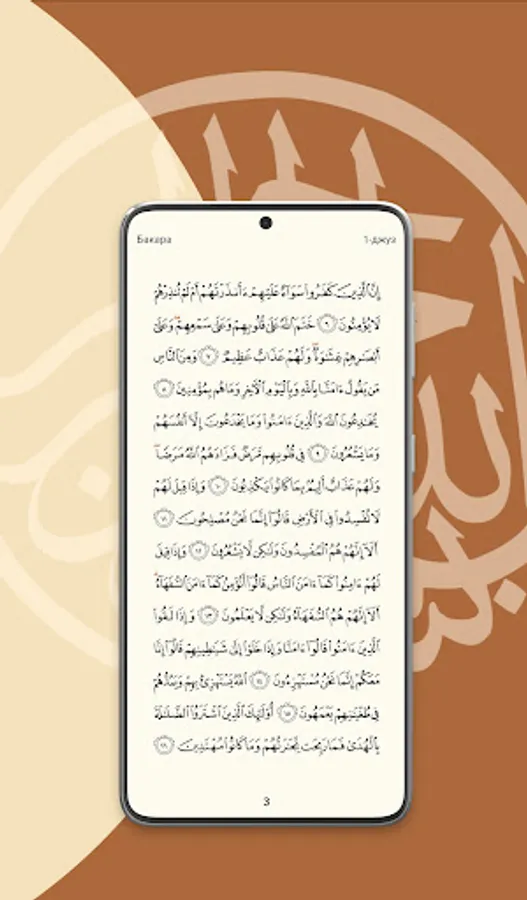 Бакара
1-джуз
إِنَّ ٱلَّذِينَ كَفَرُوا۟ سَوَآءٌ عَلَيْهِمْ ءَأَنذَرْتَهُمْ أَمْ لَمْ تُنذِرْهُمْ
لَا يُؤْمِنُونَ ٦ خَتَمَ ٱللَّهُ عَلَىٰ قُلُوبِهِمْ وَعَلَىٰ سَمْعِهِمْ ۖ وَعَلَىٰٓ
أَبْصَٰرِهِمْ غِشَٰوَةٌ ۖ وَلَهُمْ عَذَابٌ عَظِيمٌ ٧ وَمِنَ ٱلنَّاسِ
مَن يَقُولُ ءَامَنَّا بِٱللَّهِ وَبِٱلْيَوْمِ ٱلْءَاخِرِ وَمَا هُم بِمُؤْمِنِينَ ٨
يُخَٰدِعُونَ ٱللَّهَ وَٱلَّذِينَ ءَامَنُوا۟ وَمَا يَخْدَعُونَ إِلَّآ أَنفُسَهُمْ
وَمَا يَشْعُرُونَ ٩ فِى قُلُوبِهِم مَّرَضٌ فَزَادَهُمُ ٱللَّهُ مَرَضًا ۖ
وَلَهُمْ عَذَابٌ أَلِيمٌۢ بِمَا كَانُوا۟ يَكْذِبُونَ ١٠ وَإِذَا قِيلَ لَهُمْ
لَا تُفْسِدُوا۟ فِى ٱلْأَرْضِ قَالُوٓا۟ إِنَّمَا نَحْنُ مُصْلِحُونَ ١١
أَلَآ إِنَّهُمْ هُمُ ٱلْمُفْسِدُونَ وَلَٰكِن لَّا يَشْعُرُونَ ١٢ وَإِذَا قِيلَ
لَهُمْ ءَامِنُوا۟ كَمَآ ءَامَنَ ٱلنَّاسُ قَالُوٓا۟ أَنُؤْمِنُ كَمَآ ءَامَنَ ٱلسُّفَهَآءُ ۗ
أَلَآ إِنَّهُمْ هُمُ ٱلسُّفَهَآءُ وَلَٰكِن لَّا يَعْلَمُونَ ١٣ وَإِذَا لَقُوا۟
ٱلَّذِينَ ءَامَنُوا۟ قَالُوٓا۟ ءَامَنَّا وَإِذَا خَلَوْا۟ إِلَىٰ شَيَٰطِينِهِمْ قَالُوٓا۟ إِنَّا
مَعَكُمْ إِنَّمَا نَحْنُ مُسْتَهْزِءُونَ ١٤ ٱللَّهُ يَسْتَهْزِئُ بِهِمْ وَيَمُدُّهُمْ
فِى طُغْيَٰنِهِمْ يَعْمَهُونَ ١٥ أُو۟لَٰٓئِكَ ٱلَّذِينَ ٱشْتَرَوُا۟ ٱلضَّلَٰلَةَ
بِٱلْهُدَىٰ فَمَا رَبِحَت تِّجَٰرَتُهُمْ وَمَا كَانُوا۟ مُهْتَدِينَ ١٦
3